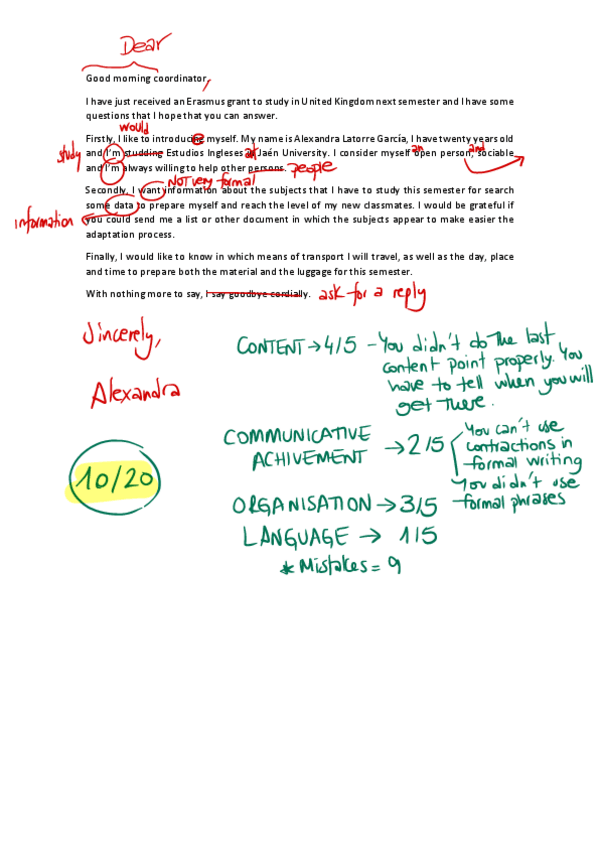 Dear
Good morning coordinator,
I have just received an Erasmus grant to study in United Kingdom next semester and I have some
questions that I hope that you can answer.
would
Firstly, I like to introducing myself. My name is Alexandra Latorre García, I have twenty years old
study and I'm studding Estudios Ingleses at Jaén University. I consider myself an open person, and sociable
and I'm always willing to help other persons. people
NOT very formal
Secondly, I want information about the subjects that I have to study this semester for search
some data to prepare myself and reach the level of my new classmates. I would be grateful if
information you could send me a list or other document in which the subjects appear to make easier the
adaptation process.
Finally, I would like to know in which means of transport I will travel, as well as the day, place
and time to prepare both the material and the luggage for this semester.
With nothing more to say, I say goodbye cordially. ask for a reply
Sincerely,
Alexandra
10/20
CONTENT → 4/5 - You didn't do the last
content point properly. You
have to tell when you will
get there.
COMMUNICATIVE
ACHIVEMENT → 2/5
You can't use
contractions in
formal writing
You didn't use
formal phrases
ORGANISATION → 3/5
LANGUAGE → 1/5
* Mistakes = 9